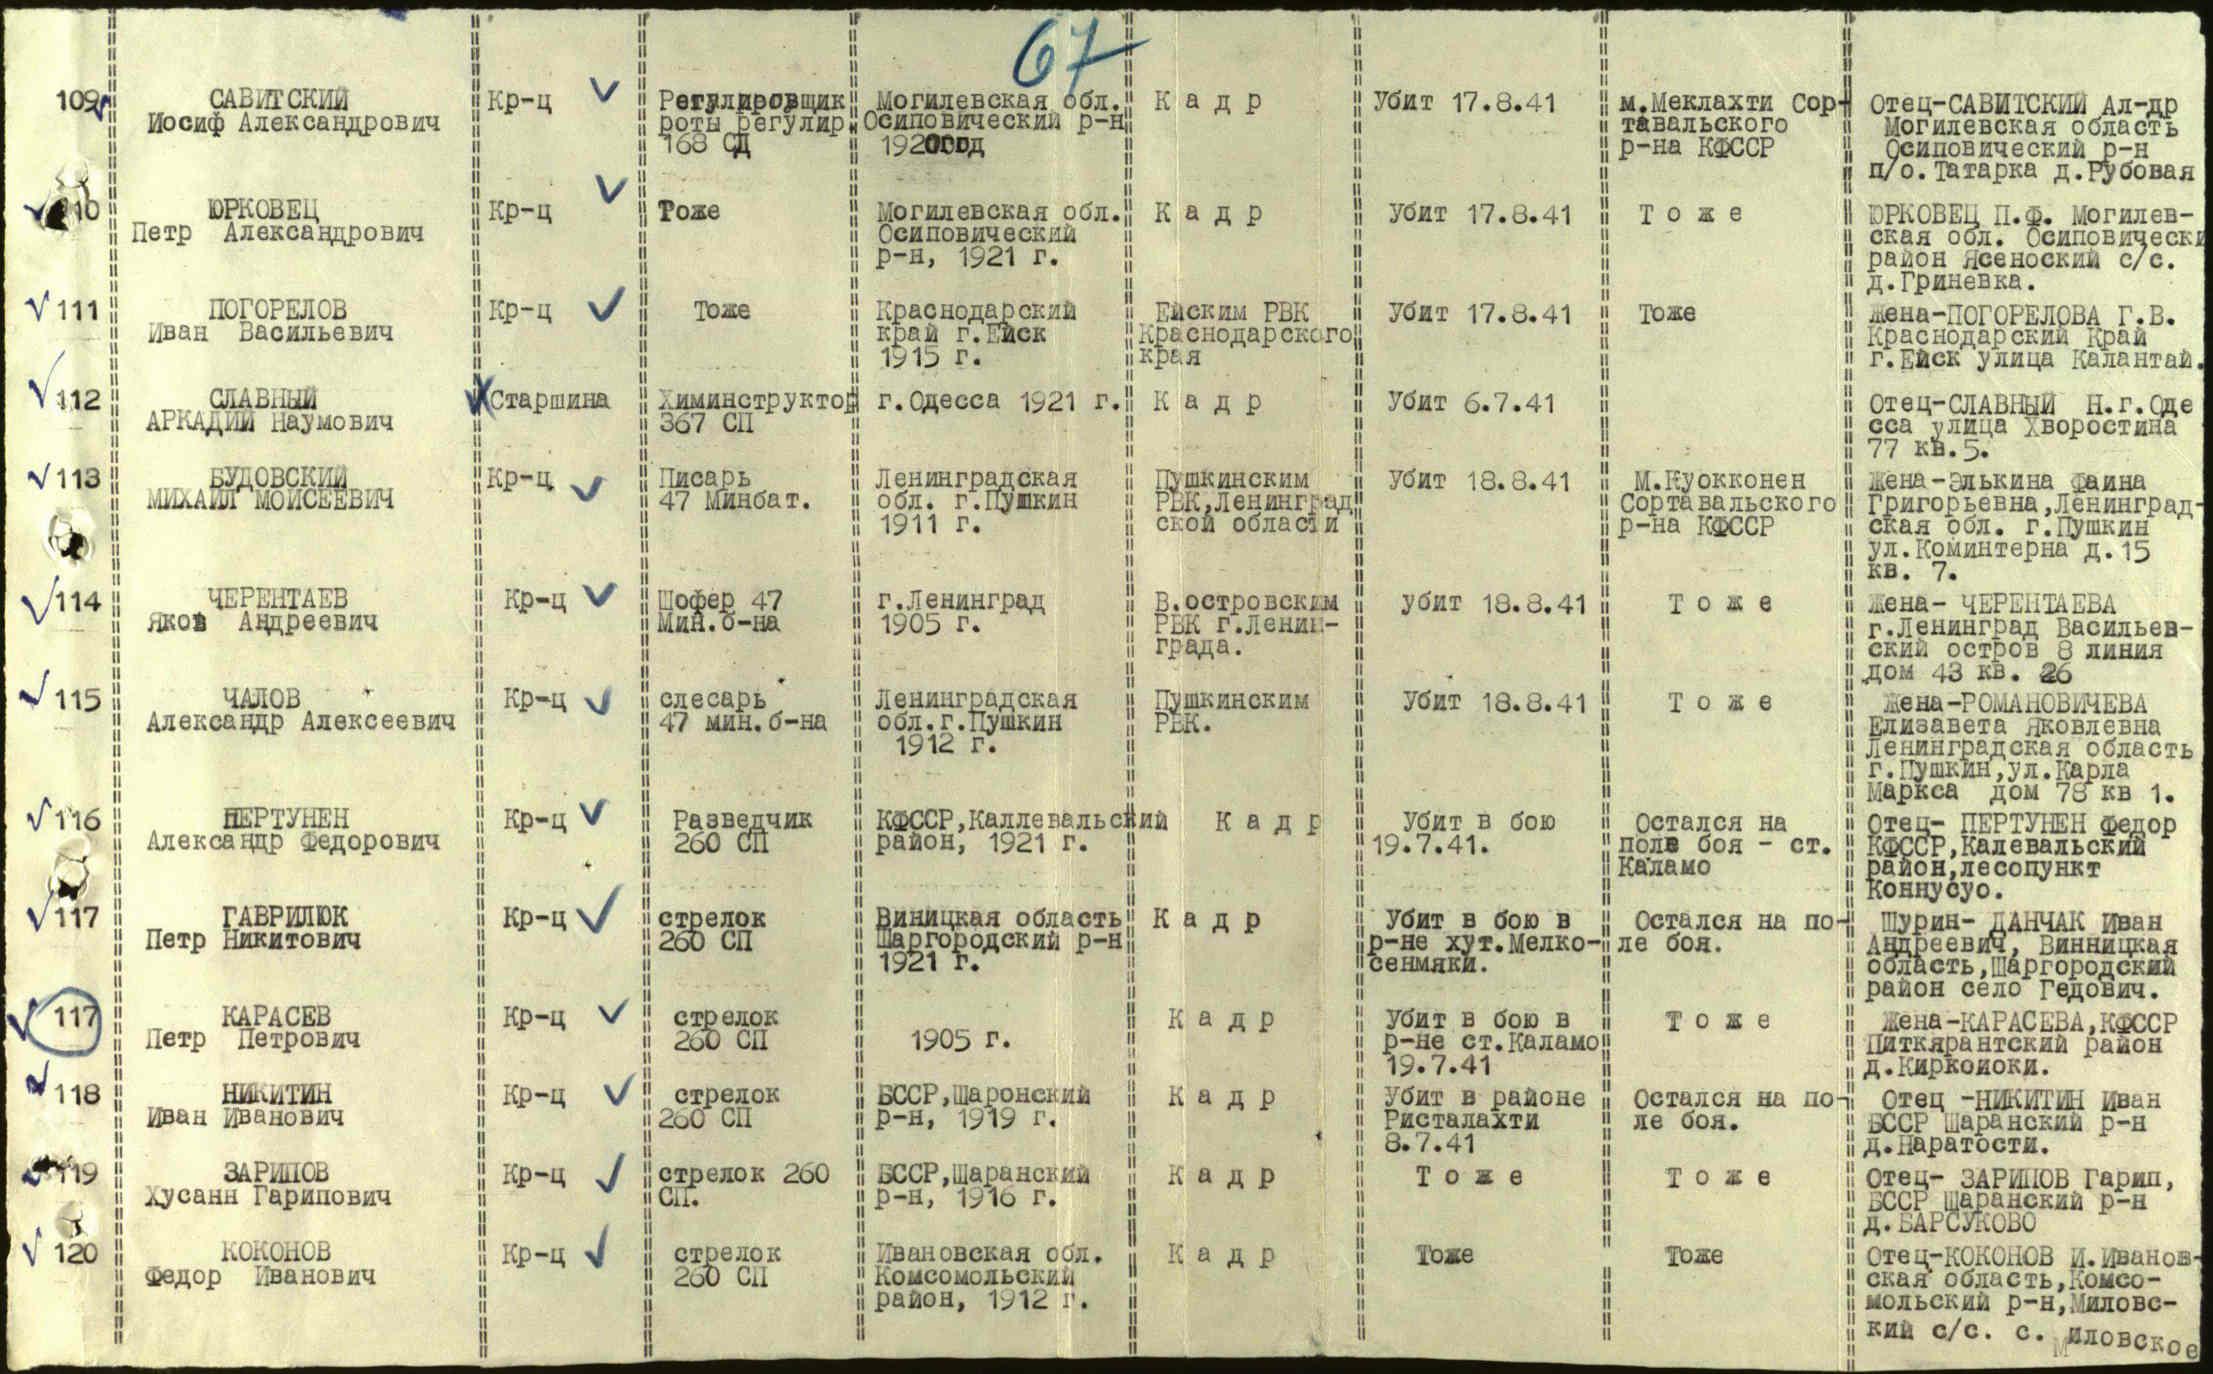 67
109
САВИТСКИЙ
Иосиф Александрович
Кр-ц
Регулировщик
роты регулир.
168 СД
Могилевская обл.
Осиповический р-н
1920год
К а д р
Убит 17.8.41
м.Меклахти Сор-
тавальского
р-на КФССР
Отец-САВИТСКИЙ Ал-др
Могилевская область
Осиповический р-н
п/о.Татарка д.Рубовая
110
ЮРКОВЕЦ
Петр Александрович
Кр-ц
Тоже
Могилевская обл.
Осиповический
р-н, 1921 г.
К а д р
Убит 17.8.41
Т о ж е
ЮРКОВЕЦ П.Ф. Могилев-
ская обл. Осиповически
район Ясеноский с/с.
д.Гриневка.
111
ПОГОРЕЛОВ
Иван Васильевич
Кр-ц
Тоже
Краснодарский
край г.Ейск
1915 г.
Ейским РВК
Краснодарского
края
Убит 17.8.41
Тоже
Жена-ПОГОРЕЛОВА Г.В.
Краснодарский Край
г.Ейск улица Калантай.
112
СЛАВНЫЙ
АРКАДИЙ Наумович
Старшина
Химинструктор
367 СП
г.Одесса 1921 г.
К а д р
Убит 6.7.41
Отец-СЛАВНЫЙ Н.г.Оде
сса улица Хворостина
77 кв.5.
113
БУДОВСКИЙ
МИХАИЛ МОИСЕЕВИЧ
Кр-ц
Писарь
47 Минбат.
Ленинградская
обл. г.Пушкин
1911 г.
Пушкинским
РВК,Ленинград
ской области
Убит 18.8.41
М.Куокконен
Сортавальского
р-на КФССР
Жена-Элькина Фаина
Григорьевна,Ленинград-
ская обл. г.Пушкин
ул.Коминтерна д.15
кв. 7.
114
ЧЕРЕНТАЕВ
Яков Андреевич
Кр-ц
Шофер 47
Мин.б-на
г.Ленинград
1905 г.
В.островским
РВК г.Ленин-
града.
убит 18.8.41
Т о ж е
Жена- ЧЕРЕНТАЕВА
г.Ленинград Васильев-
ский остров 8 линия
дом 43 кв. 26
115
ЧАЛОВ
Александр Алексеевич
Кр-ц
слесарь
47 мин.б-на
Ленинградская
обл.г.Пушкин
1912 г.
Пушкинским
РВК.
Убит 18.8.41
Т о ж е
Жена-РОМАНОВИЧЕВА
Елизавета Яковлевна
Ленинградская область
г.Пушкин,ул.Карла
Маркса дом 78 кв 1.
116
ПЕРТУНЕН
Александр Федорович
Кр-ц
Разведчик
260 СП
КФССР,Каллевальский
район, 1921 г.
К а д р
Убит в бою
19.7.41.
Остался на
поле боя - ст.
Каламо
Отец- ПЕРТУНЕН Федор
КФССР,Калевальский
район,лесопункт
Коннусуо.
117
ГАВРИЛЮК
Петр Никитович
Кр-ц
стрелок
260 СП
Виницкая область
Шаргородский р-н
1921 г.
К а д р
Убит в бою в
р-не хут.Мелко-
сенмяки.
Остался на по-
ле боя.
Шурин- ДАНЧАК Иван
Андреевич, Винницкая
область,Шаргородский
район село Гедович.
117
КАРАСЕВ
Петр Петрович
Кр-ц
стрелок
260 СП
1905 г.
К а д р
Убит в бою в
р-не ст.Каламо
19.7.41
Т о ж е
Жена-КАРАСЕВА,КФССР
Питкярантский район
д.Киркоиоки.
118
НИКИТИН
Иван Иванович
Кр-ц
стрелок
260 СП
БССР,Шаронский
р-н, 1919 г.
К а д р
Убит в районе
Ристалахти
8.7.41
Остался на по-
ле боя.
Отец -НИКИТИН Иван
БССР Шаранский р-н
д.Наратости.
119
ЗАРИПОВ
Хусанн Гарипович
Кр-ц
стрелок 260
СП.
БССР,Шаранский
р-н, 1916 г.
К а д р
Т о ж е
Т о ж е
Отец- ЗАРИПОВ Гарип,
БССР Шаранский р-н
д.БАРСУКОВО
120
КОКОНОВ
Федор Иванович
Кр-ц
стрелок
260 СП
Ивановская обл.
Комсомольский
район, 1912 г.
К а д р
Тоже
Тоже
Отец-КОКОНОВ И.Иванов-
ская область,Комсо-
мольский р-н,Миловс-
кий с/с. с. Миловское